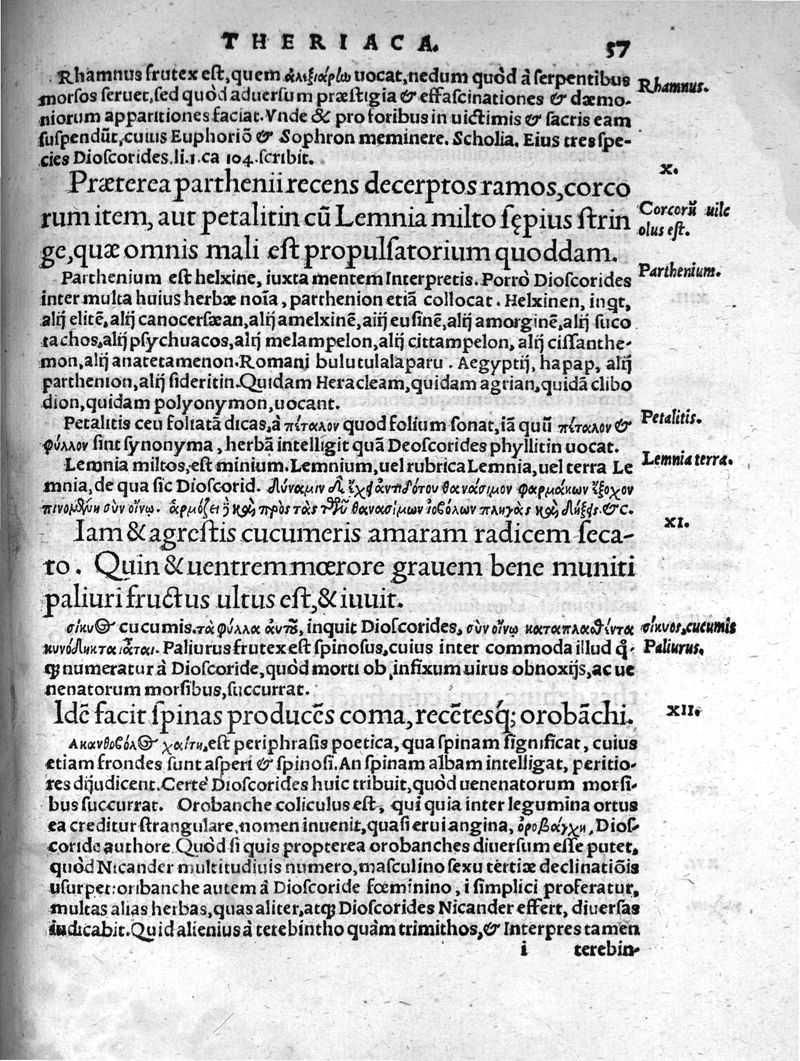 THERIACA. 57
Rhamnus frutex est, quem ἀλεξιάρεω uocat, nedum quòd à serpentibus
morsos seruet, sed quòd aduersum præstigia & effascinationes & dæmo-
niorum apparitiones faciat. Vnde & pro foribus in uictimis & sacris eam
suspendūt, cuius Euphoriō & Sophron meminere. Scholia. Eius tres spe-
cies Dioscorides. li. 1. ca 104. scribit.
Rhamnus.
Præterea parthenii recens decerptos ramos, corco
rum item, aut petalitin cū Lemnia milto sępius strin
ge, quæ omnis mali est propulsatorium quoddam.
X.
Corcorū uile
olus est.
Parthenium est helxine, iuxta mentem Interpretis. Porrò Dioscorides
inter multa huius herbæ noīa, parthenion etiā collocat. Helxinen, inqt,
alij elitē, alij canocersæan, alij amelxinē, aiij eusinē, alij amorginē, alij suco
tachos, alij psychuacos, alij melampelon, alij cittampelon, alij cissanthe-
mon, alij anatetamenon. Romani bulutulalaparu. Aegyptij, hapap, alij
parthenion, alij sideritin. Quidam Heracleam, quidam agrian, quidā clibo
dion, quidam polyonymon, uocant.
Parthenium.
Petalitis ceu foliatā dicas, à πέταλον quod folium sonat, iā quū πέταλον &
φύλλον sint synonyma, herbā intelligit quā Deoscorides phyllitin uocat.
Petalitis.
Lemnia miltos, est minium. Lemnium, uel rubrica Lemnia, uel terra Le
mnia, de qua sic Dioscorid. Δύναμιν δὲ ἔχει ἀντιδότου θανάσιμον φαρμάκων ἔξοχον
πινομένη σὺν οἴνῳ. ἁρμόζει ἢ καὶ πρὸς τὰς τῶν θανασίμων ἰοβόλων πληγὰς καὶ δήξεις. &c.
Lemnia terra.
Iam & agrestis cucumeris amaram radicem seca-
to. Quin & uentrem mœrore grauem bene muniti
paliuri fructus ultus est, & iuuit.
XI.
σίκυος cucumis. τὰ φύλλα αὐτοῦ, inquit Dioscorides, σὺν οἴνῳ καταπλασθέντα
κυνοδήκτα ἰᾶται. Paliurus frutex est spinosus, cuius inter commoda illud ꝙ-
ꝗ numeratur à Dioscoride, quòd morti ob infixum uirus obnoxijs, ac ue
nenatorum morsibus, succurrat.
σίκυος, cucumis
Paliurus.
Idē facit spinas producēs coma, recētesq; orobāchi.
XII.
Ακανθοβόλος χαίτη, est periphrasis poetica, qua spinam significat, cuius
etiam frondes sunt asperi & spinosi. An spinam albam intelligat, peritio-
res dijudicent. Certè Dioscorides huic tribuit, quòd uenenatorum morsi-
bus succurrat. Orobanche coliculus est, qui quia inter legumina ortus
ea creditur strangulare, nomen inuenit, quasi erui angina, ὀροβάγχη, Dios-
coride authore. Quòd si quis propterea orobanches diuersum esse putet,
quòd Nicander multitudiuis numero, masculino sexu tertiæ declinatiōis
usurpet: oribanche autem à Dioscoride fœminino, i simplici proferatur,
multas alias herbas, quas aliter, atq; Dioscorides Nicander effert, diuersas
iudicabit. Quid alienius à terebintho quàm trimithos, & Interpres tamen
i terebin-